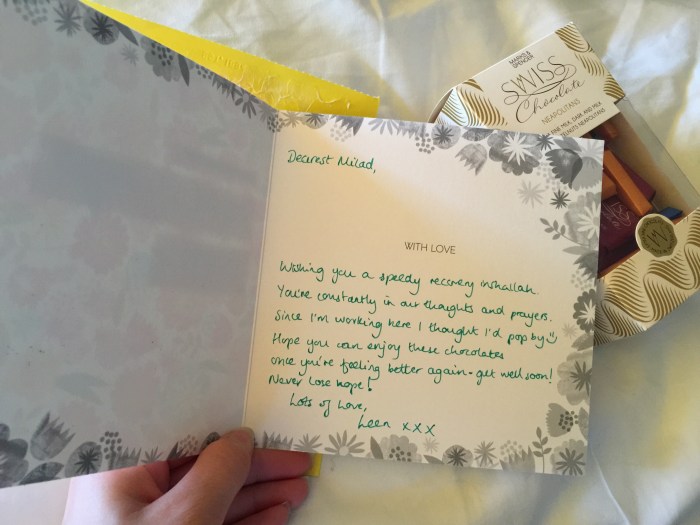 MARKS &
SPENCER
SWISS
Chocolate
NEAPOLITANS
Dearest Milad,
WITH LOVE
Wishing you a speedy recovery inshallah.
You're constantly in our thoughts and prayers.
Since I'm working here I thought I'd pop by
Hope you can enjoy these chocolates
once you're feeling better again - get well soon!
Never lose hope!
Lots of Love,
Leen xxx